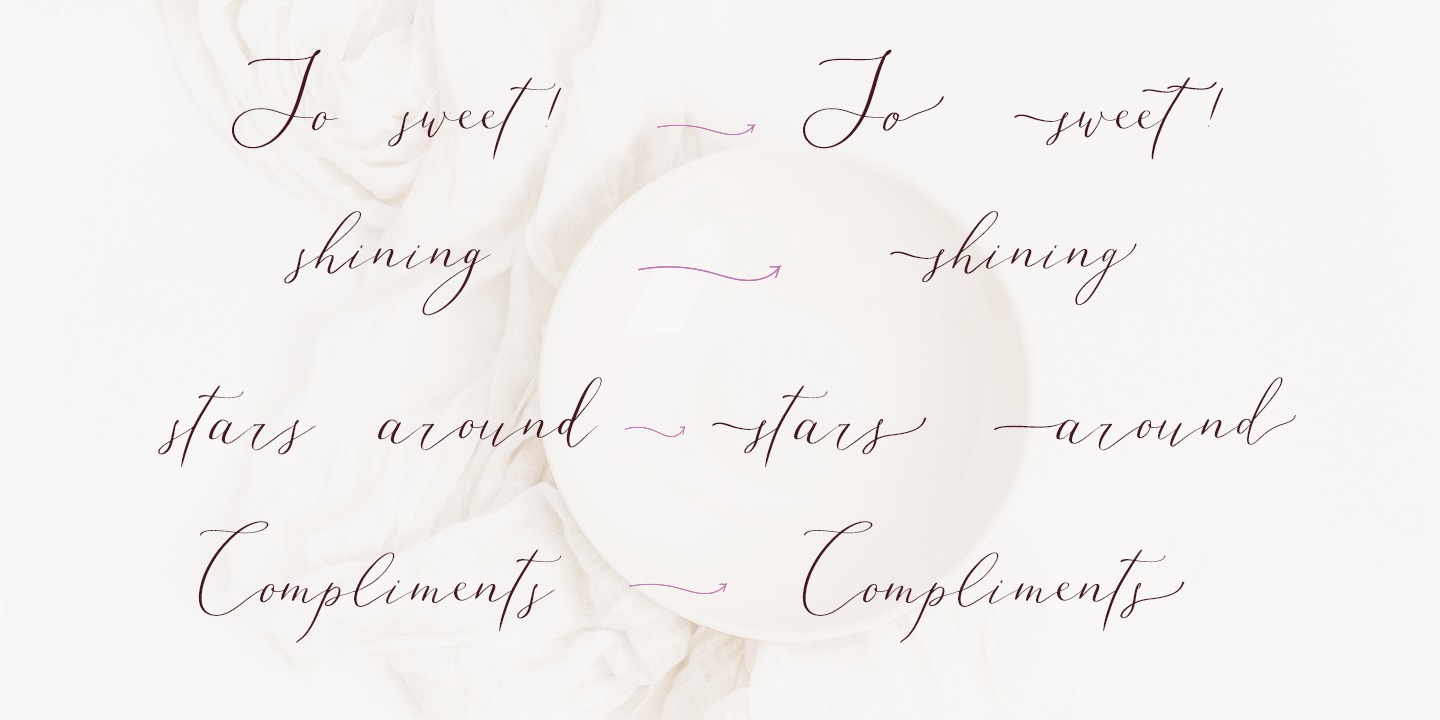 So sweet! So sweet!
shining shining
stars around stars around
Compliments Compliments